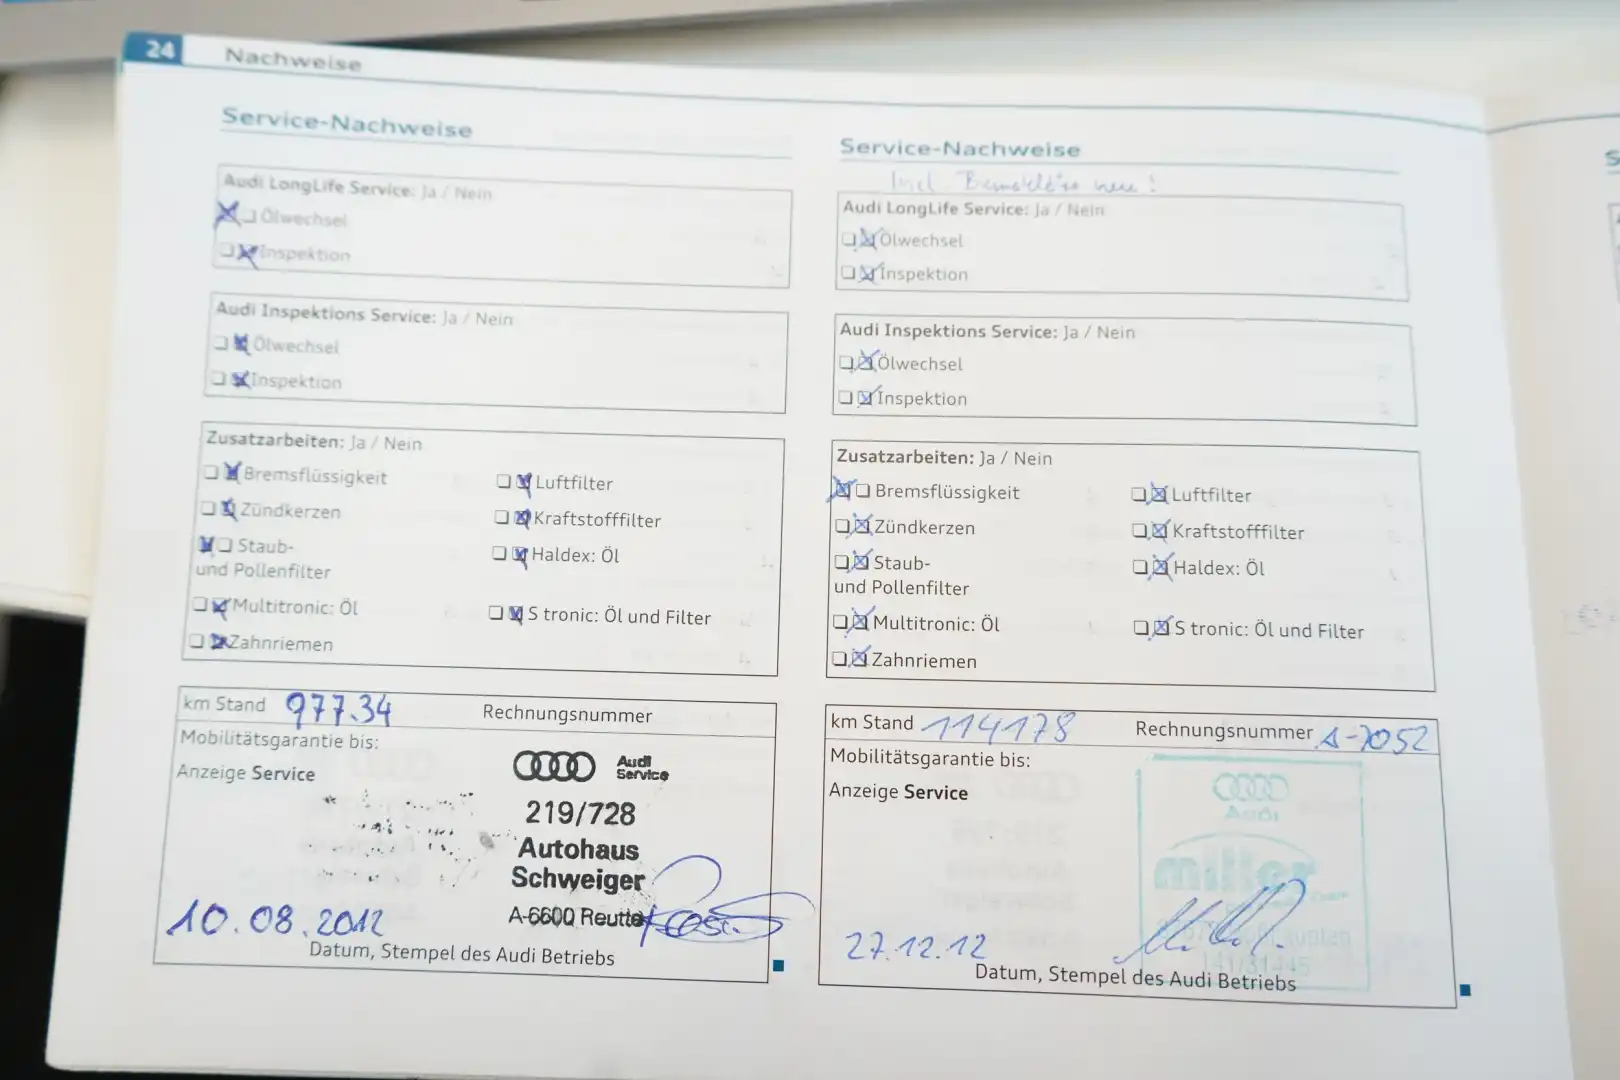 24 Nachweise
Service-Nachweise
Audi LongLife Service: Ja / Nein
Ölwechsel
Inspektion
Audi Inspektions Service: Ja / Nein
Ölwechsel
Inspektion
Zusatzarbeiten: Ja / Nein
Bremsflüssigkeit
Luftfilter
Zündkerzen
Kraftstofffilter
Staub-
und Pollenfilter
Haldex: Öl
Multitronic: Öl
S tronic: Öl und Filter
Zahnriemen
km Stand 977.34 Rechnungsnummer
Mobilitätsgarantie bis:
Anzeige Service
Audi
Service
219/728
Autohaus
Schweiger
A-6600 Reutte
10.08.2012
Datum, Stempel des Audi Betriebs
Service-Nachweise
Incl. neu!
Audi LongLife Service: Ja / Nein
Ölwechsel
Inspektion
Audi Inspektions Service: Ja / Nein
Ölwechsel
Inspektion
Zusatzarbeiten: Ja / Nein
Bremsflüssigkeit
Luftfilter
Zündkerzen
Kraftstofffilter
Staub-
und Pollenfilter
Haldex: Öl
Multitronic: Öl
S tronic: Öl und Filter
Zahnriemen
km Stand 114178 Rechnungsnummer A-7052
Mobilitätsgarantie bis:
Anzeige Service
Audi
miller
27.12.12
Datum, Stempel des Audi Betriebs